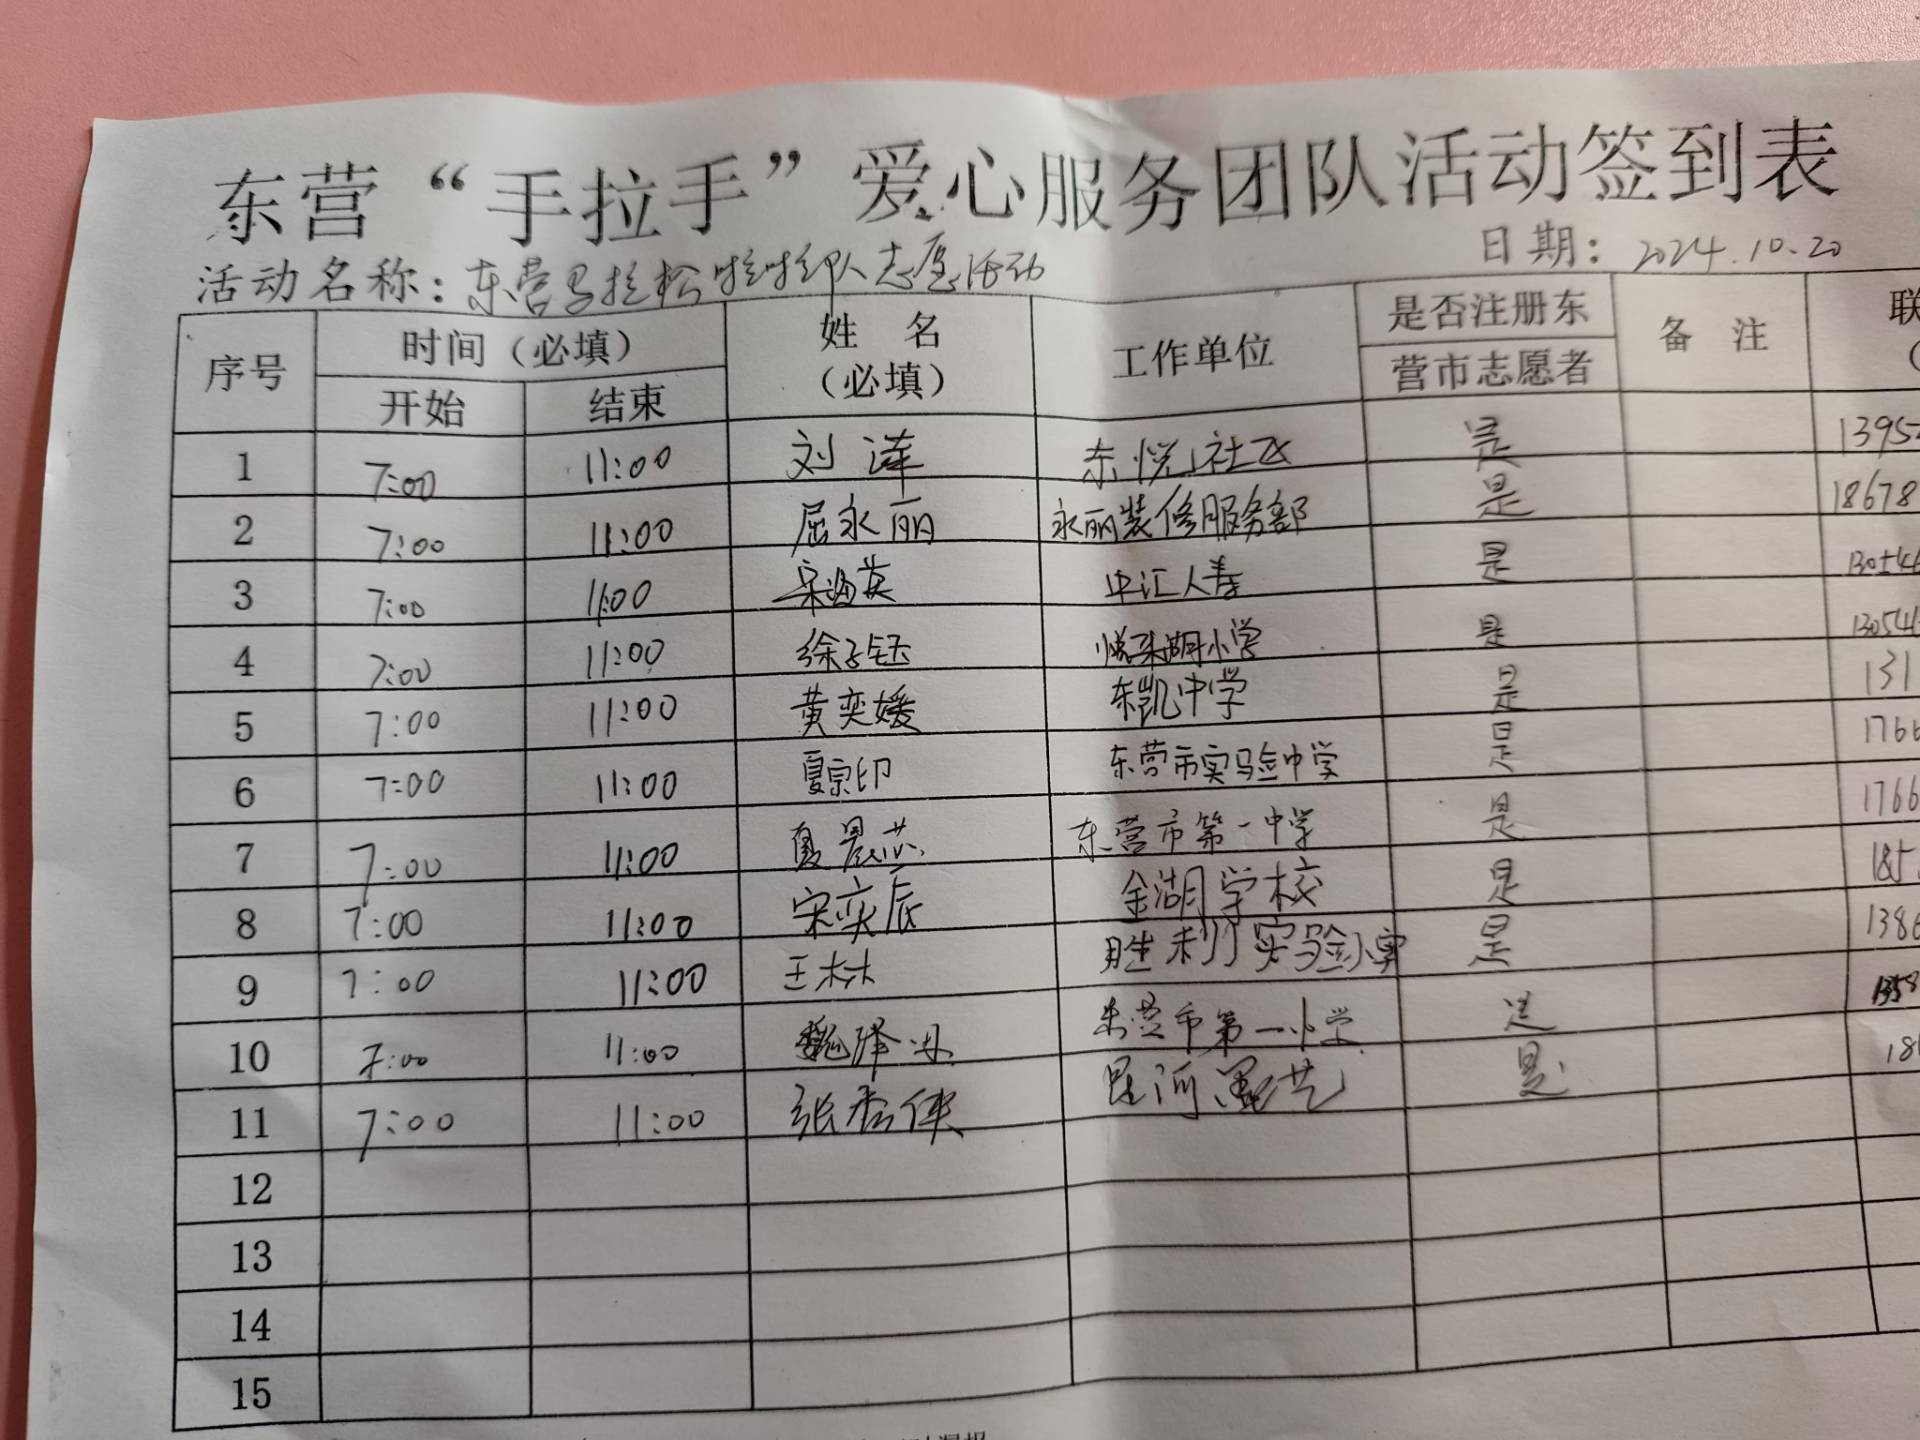 东营“手拉手”爱心服务团队活动签到表
活动名称：东营马拉松啦啦队志愿活动 日期：2024.10.20
序号 时间（必填） 姓 名（必填） 工作单位 是否注册东营市志愿者 备 注 联
开始 结束
1 7:00 11:00 刘 洋 东悦社区 是 1395
2 7:00 11:00 屈永丽 永丽装修服务部 是 18678
3 7:00 11:00 宋海英 中汇人寿 是
4 7:00 11:00 徐子钰 悦来湖小学 是 13054
5 7:00 11:00 黄奕媛 东凯中学 是 131
6 7:00 11:00 夏宗印 东营市实验中学 是 1766
7 7:00 11:00 夏晨芯 东营市第一中学 是 1766
8 7:00 11:00 宋奕辰 金湖学校 是 185
9 7:00 11:00 王林林 胜利实验小学 是 1386
10 7:00 11:00 魏泽 东营市第一小学 是
11 7:00 11:00 张 是 18
12
13
14
15